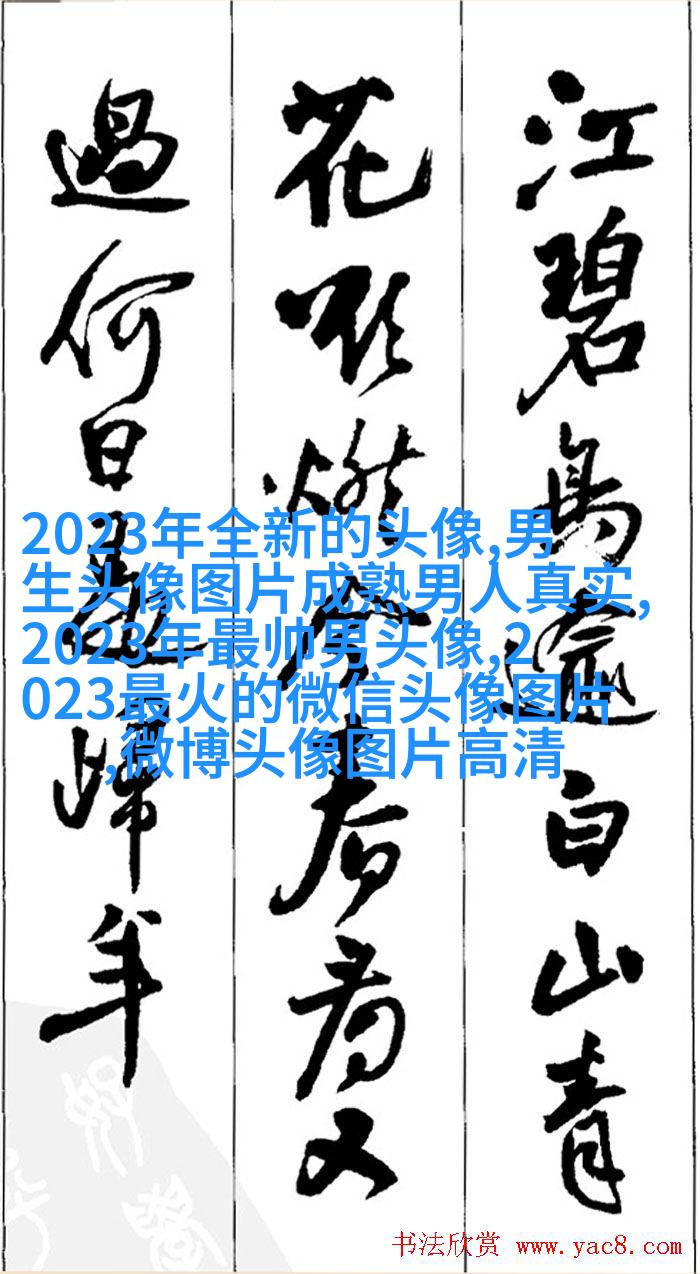 江碧鳥逾白山青
花欲燃今春看又
過何日是歸年
2023年全新的头像,男
生头像图片成熟男人真实,
2023年最帅男头像,2
023最火的微信头像图片
,微博头像图片高清
书法欣赏 www.yac8.com